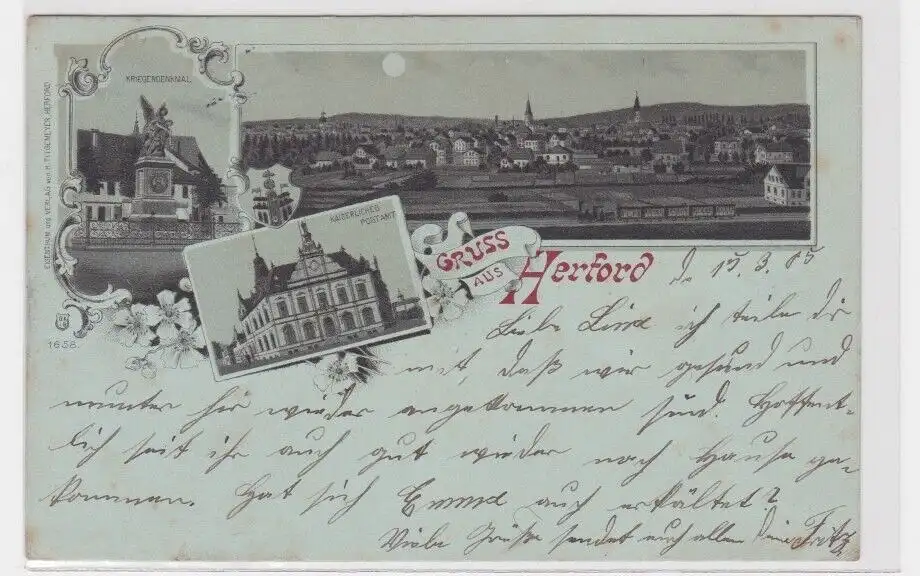 KRIEGERDENKMAL
EIGENTHUM und VERLAG von H. TITGEMEYER, HERFORD
KAISERLICHES
POSTAMT
GRUSS
AUS
Herford
1658.
d. 15. 3. 05
Liebe Line ich teile dir
mit, daß wir gesund und
munter hir wieder angekommen sind. Hoffent-
lich seit ihr auch gut wieder nach Hause ge-
kommen. Hat sich Emma auch erkältet?
Viele Grüße sendet euch allen dein Fritz